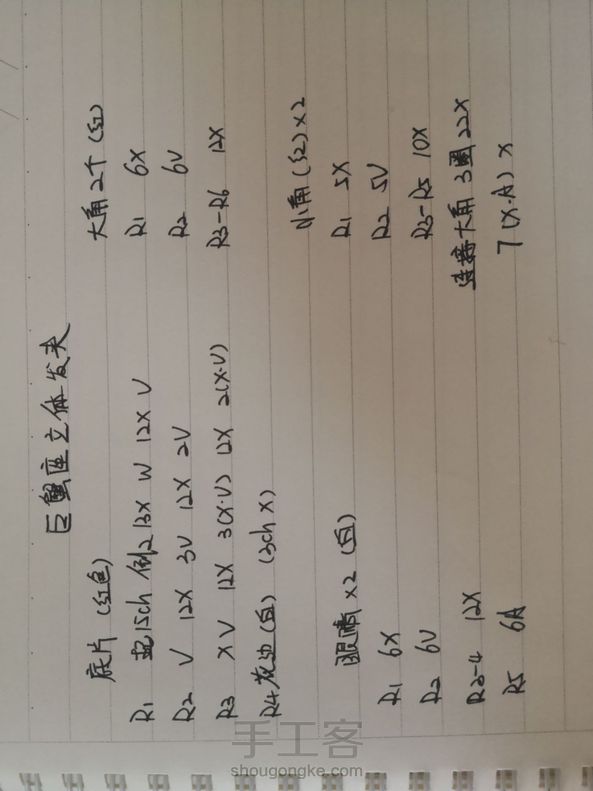 巨蟹座立体发夹
底片 (红色)
R1 起15ch 倒2 13X W 12X V
R2 V 12X 3V 12X 2V
R3 XV 12X 3(X·V) 12X 2(X·V)
R4 花边(白) (3ch X)
眼睛 x2 (白)
R1 6X
R2 6V
R3-4 12X
R5 6A
大角2个 (红)
R1 6X
R2 6V
R3-R6 12X
小角 (红) x2
R1 5X
R2 5V
R3-R5 10X
连接大角 3圈 22X
7(X·A) X
手工客
shougongke.com